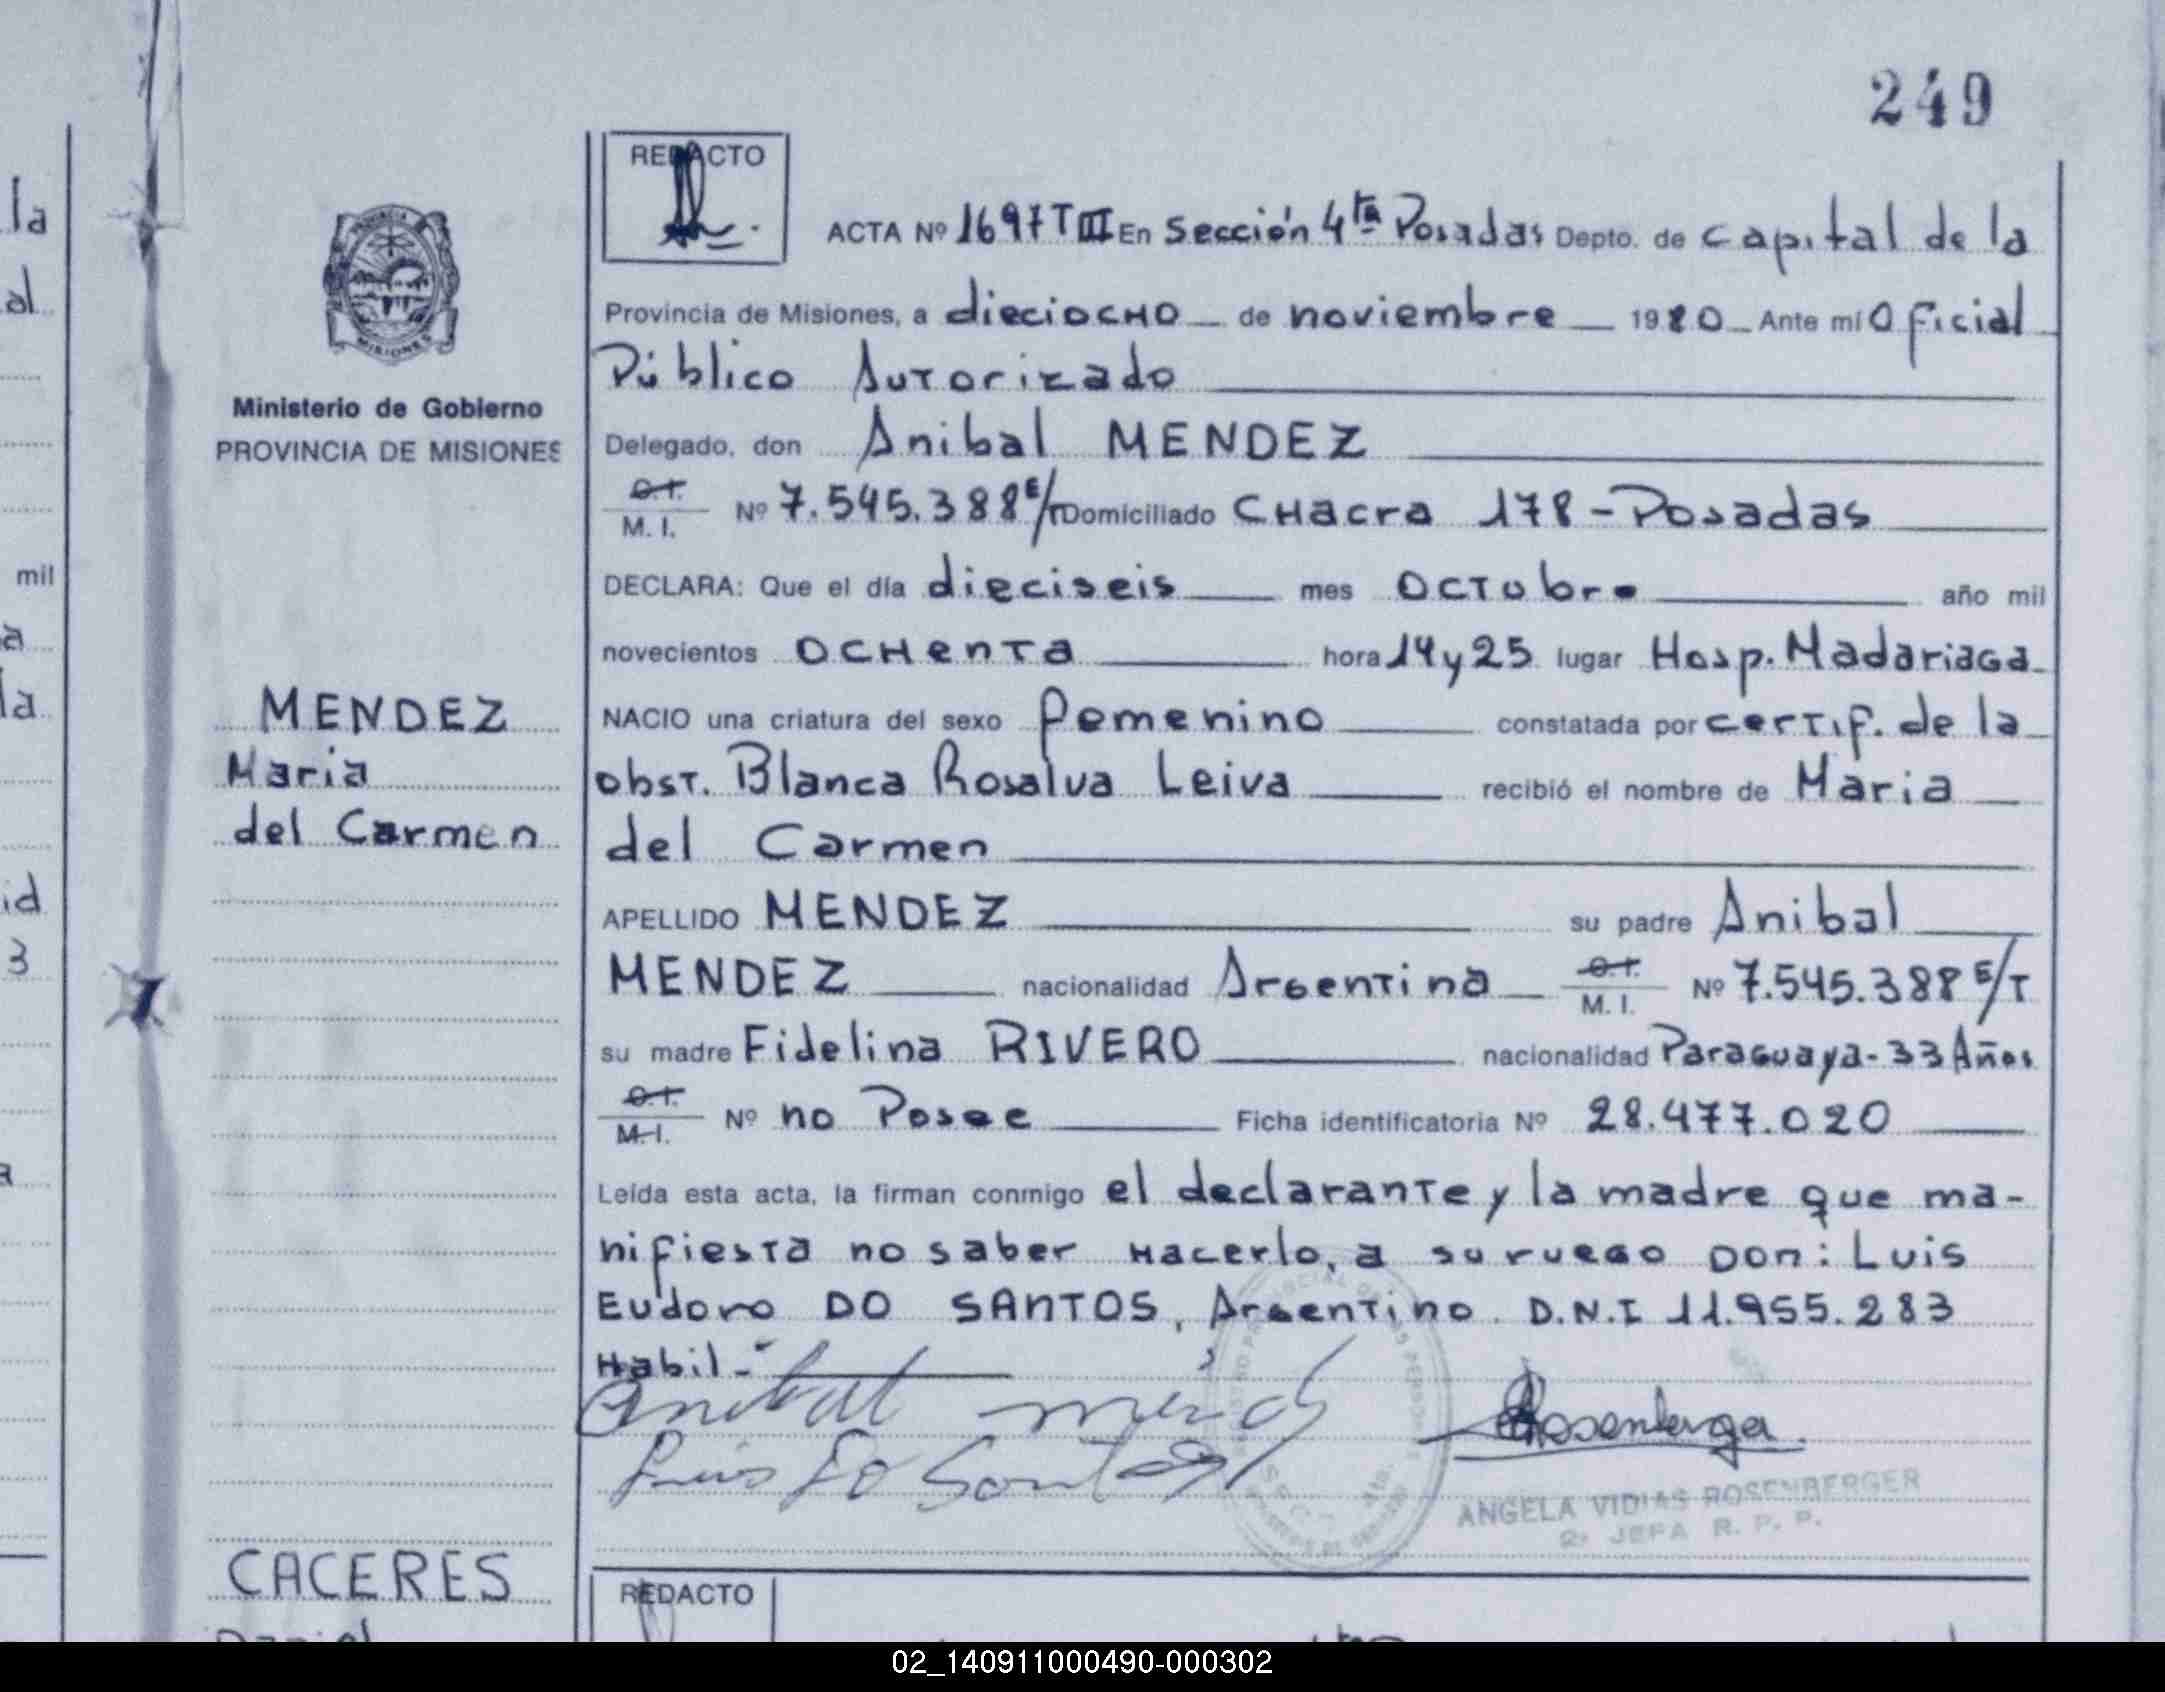 249
la
al
mil
a
la
id
3
a
PROVINCIA
MISIONES
Ministerio de Gobierno
PROVINCIA DE MISIONES
MENDEZ
Maria
del Carmen
CACERES
REDACTO
ACTA Nº 1697 T III En Sección 4ta Posadas Depto. de capital de la
Provincia de Misiones, a dieciocho de noviembre 1980 Ante mí Oficial
Público Autorizado
Delegado, don Anibal MENDEZ
C.I. M. I. Nº 7.545.388 E/T Domiciliado Chacra 178 - Posadas
DECLARA: Que el día dieciseis mes Octubre año mil
novecientos ochenta hora 14 y 25 lugar Hosp. Madariaga
NACIO una criatura del sexo femenino constatada por certif. de la
obst. Blanca Rosalva Leiva recibió el nombre de Maria
del Carmen
APELLIDO MENDEZ su padre Anibal
MENDEZ nacionalidad Argentina C.I. M. I. Nº 7.545.388 E/T
su madre Fidelina RIVERO nacionalidad Paraguaya - 33 Años
C.I. M.I. Nº no Posee Ficha identificatoria Nº 28.477.020
Leída esta acta, la firman conmigo el declarante y la madre que ma-
nifiesta no saber hacerlo, a su ruego Don: Luis
Eudoro DO SANTOS, Argentino D.N.I 11.955.283
Habil.-
Anibal mendez
Luis Do Santos
ANGELA VIDIAS ROSENBERGER
2º JEFA R. P. P.
REDACTO
02_140911000490-000302